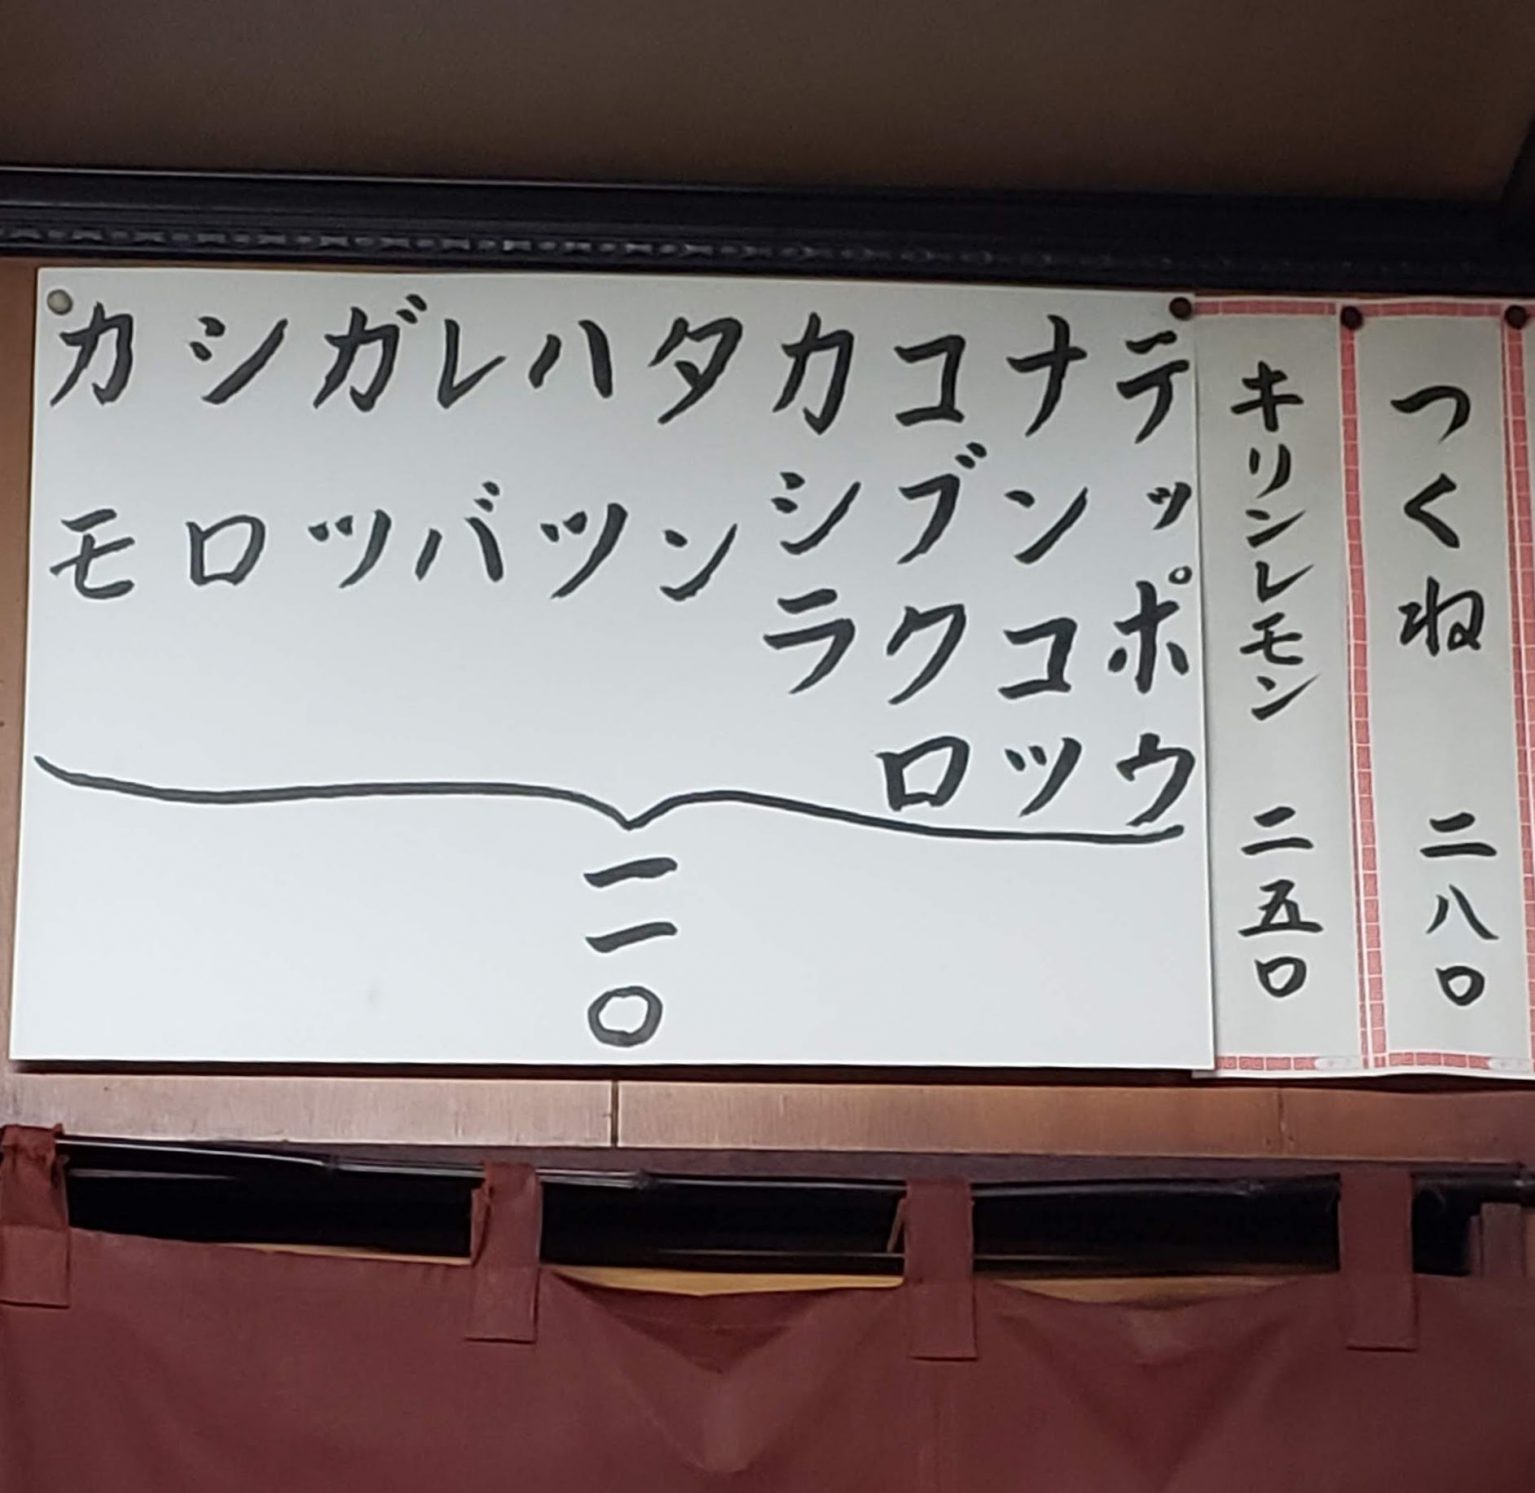 つくね 二八〇
キリンレモン 二五〇
テッポウ
ナンコツ
コブクロ
カシラ
タン
ハツ
レバ
ガツ
シロ
カモ
二一〇